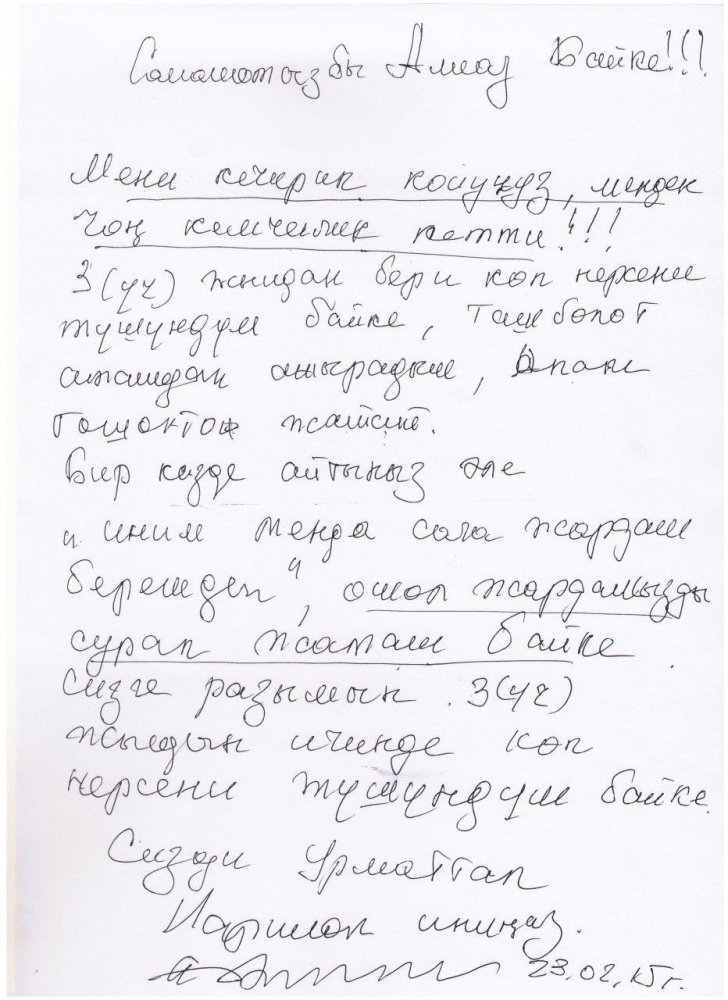 Саламатсызбы Алмаз Байке!!!
Мени кечирип коюңуз, менден
Чоң кемчилик кетти!!!
3(үч) жылдан бери көп нерсени
түшүндүм байке, Ташболот
атамдан ажырадым, Апам
төшөктө жатат.
Бир кезде айтыңыз эле
"иним менда сага жардам
беремдеп", ошол жардамыңызды
сурап жатам байке
Сизге разымын. 3(үч)
жылдын ичинде көп
нерсени түшүндүм байке.
Сизди Урматтап
иниңиз.
23.02.15г.